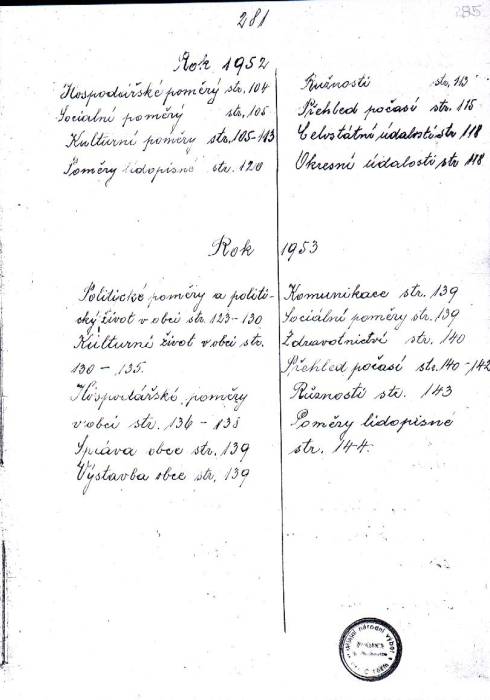 281
285
Rok 1952
Hospodářské poměry str. 104
Sociální poměry str. 105
Kulturní poměry str. 105-113
Poměry lidopisné str. 120
Růžnosti str. 113
Přehled počasí str. 115
Celostátní údalosti str 118
Okresní údalosti str 118
Rok 1953
Politické poměry a politi-
cký život v obci str. 123-130
Kulturní život v obci str.
130 - 135.
Hospodářské poměry
v obci str. 136 - 138
Správa obce str. 139
Výstavba obce str. 139
Komunikace str. 139
Sociální poměry str. 139
Zdravotnictví str. 140
Přehled počasí str. 140-142
Růžnosti str. 143
Poměry lidopisné
str. 144.
národní výbor